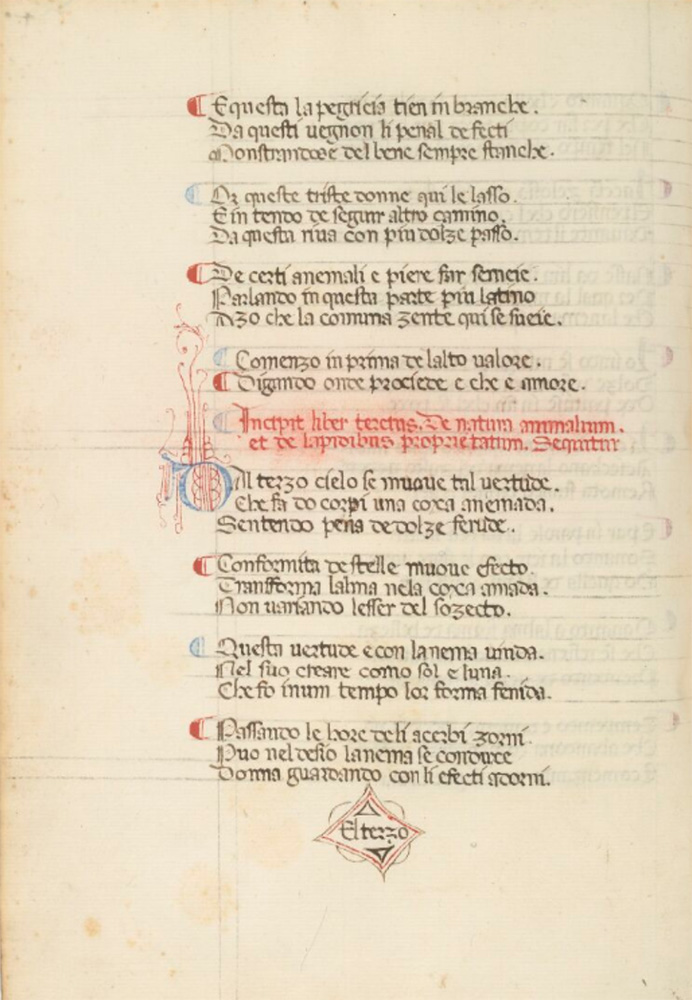 E questa la pegricia tien in branche.
Da questi uegnon li penal defecti
Monstrandose del bene sempre stanche.
Or queste triste donne qui le lasso.
E in tendo de seguir altro camino.
Da questa riua con piu dolze passo.
De certi anemali e piere far semeie.
Parlando in questa parte piu latino
Azo che la comuna zente qui se sueie.
Comenzo in prima de lalto ualore.
Digando onde prociede e che e amore.
Incipit liber tercius. De natura animalium.
et de lapidibus proprietatum. Sequitur
Dal terzo cielo se muoue tal uertude.
Che fa do corpi una coxa anemada.
Sentendo pena de dolze ferude.
Conformita de stelle muoue efecto.
Transforma lalma nela coxa amada.
Non uariando lesser del sozecto.
Questa uertude e con lanema unida.
Nel suo creare como sol e luna.
Che fo in um tempo lor forma fenida.
Passando le hore deli acerbi zorni
Puo nel desio lanema se conduxe
Donna guardando con li efecti adorni.
El terzo